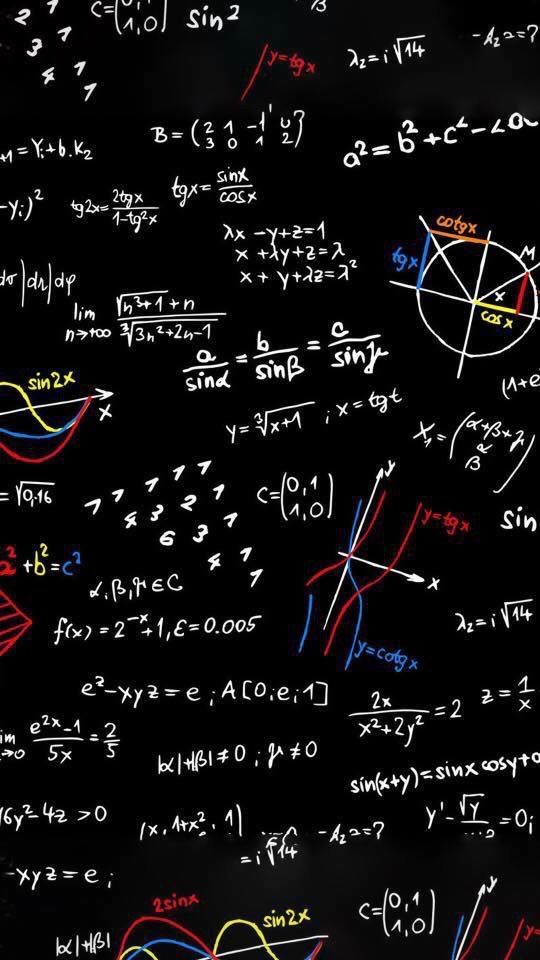 2 1
3 1
4 1
1
C=( 1,0)
sin²
B
y=tgx
λ₂=i√14
-A₂=?
+1=Yᵢ+b.K₂
B=(2 1 -1 0
3 0 1 2)
a²=b²+c²-2
-yᵢ)²
tg2x=2tgx/1-tg²x
tgx=sinx/cosx
λx-y+z=1
x+λy+z=λ
x+y+λz=λ²
cotgx
tgx
M
x
cosx
|dr|dφ
lim n→+∞ √n³+1+n/∛3n²+2n-1
a/sinα=b/sinβ=c/sinγ
sin2x
x
(1+e
y=∛x+1 ; x=tgt
X₁=(α+β+γ
α
β)
=√0,16
1 1 1 1 1
4 3 2 1
6 3 1
4 1
1
C=(0,1
1,0)
y
y=tgx
x
y=cotgx
sin
a²+b²=c²
α,β,γ∈C
f(x)=2⁻ˣ+1,ε=0.005
λ₂=i√14
eᶻ-xyz=e ; A[0;e;1]
2x/x²+2y²=2
z=1/x
lim →0 e²ˣ-1/5x=2/5
|α|+|β|≠0 ; γ≠0
sin(x+y)=sinx cosy+
6y²-4z>0
(x,1+x²,1)
-A₂=?
y'-√y =0;
=i√14
-xyz=e;
2sinx
sin2x
C=(0,1
1,0)
y
y=
|α|+|β|